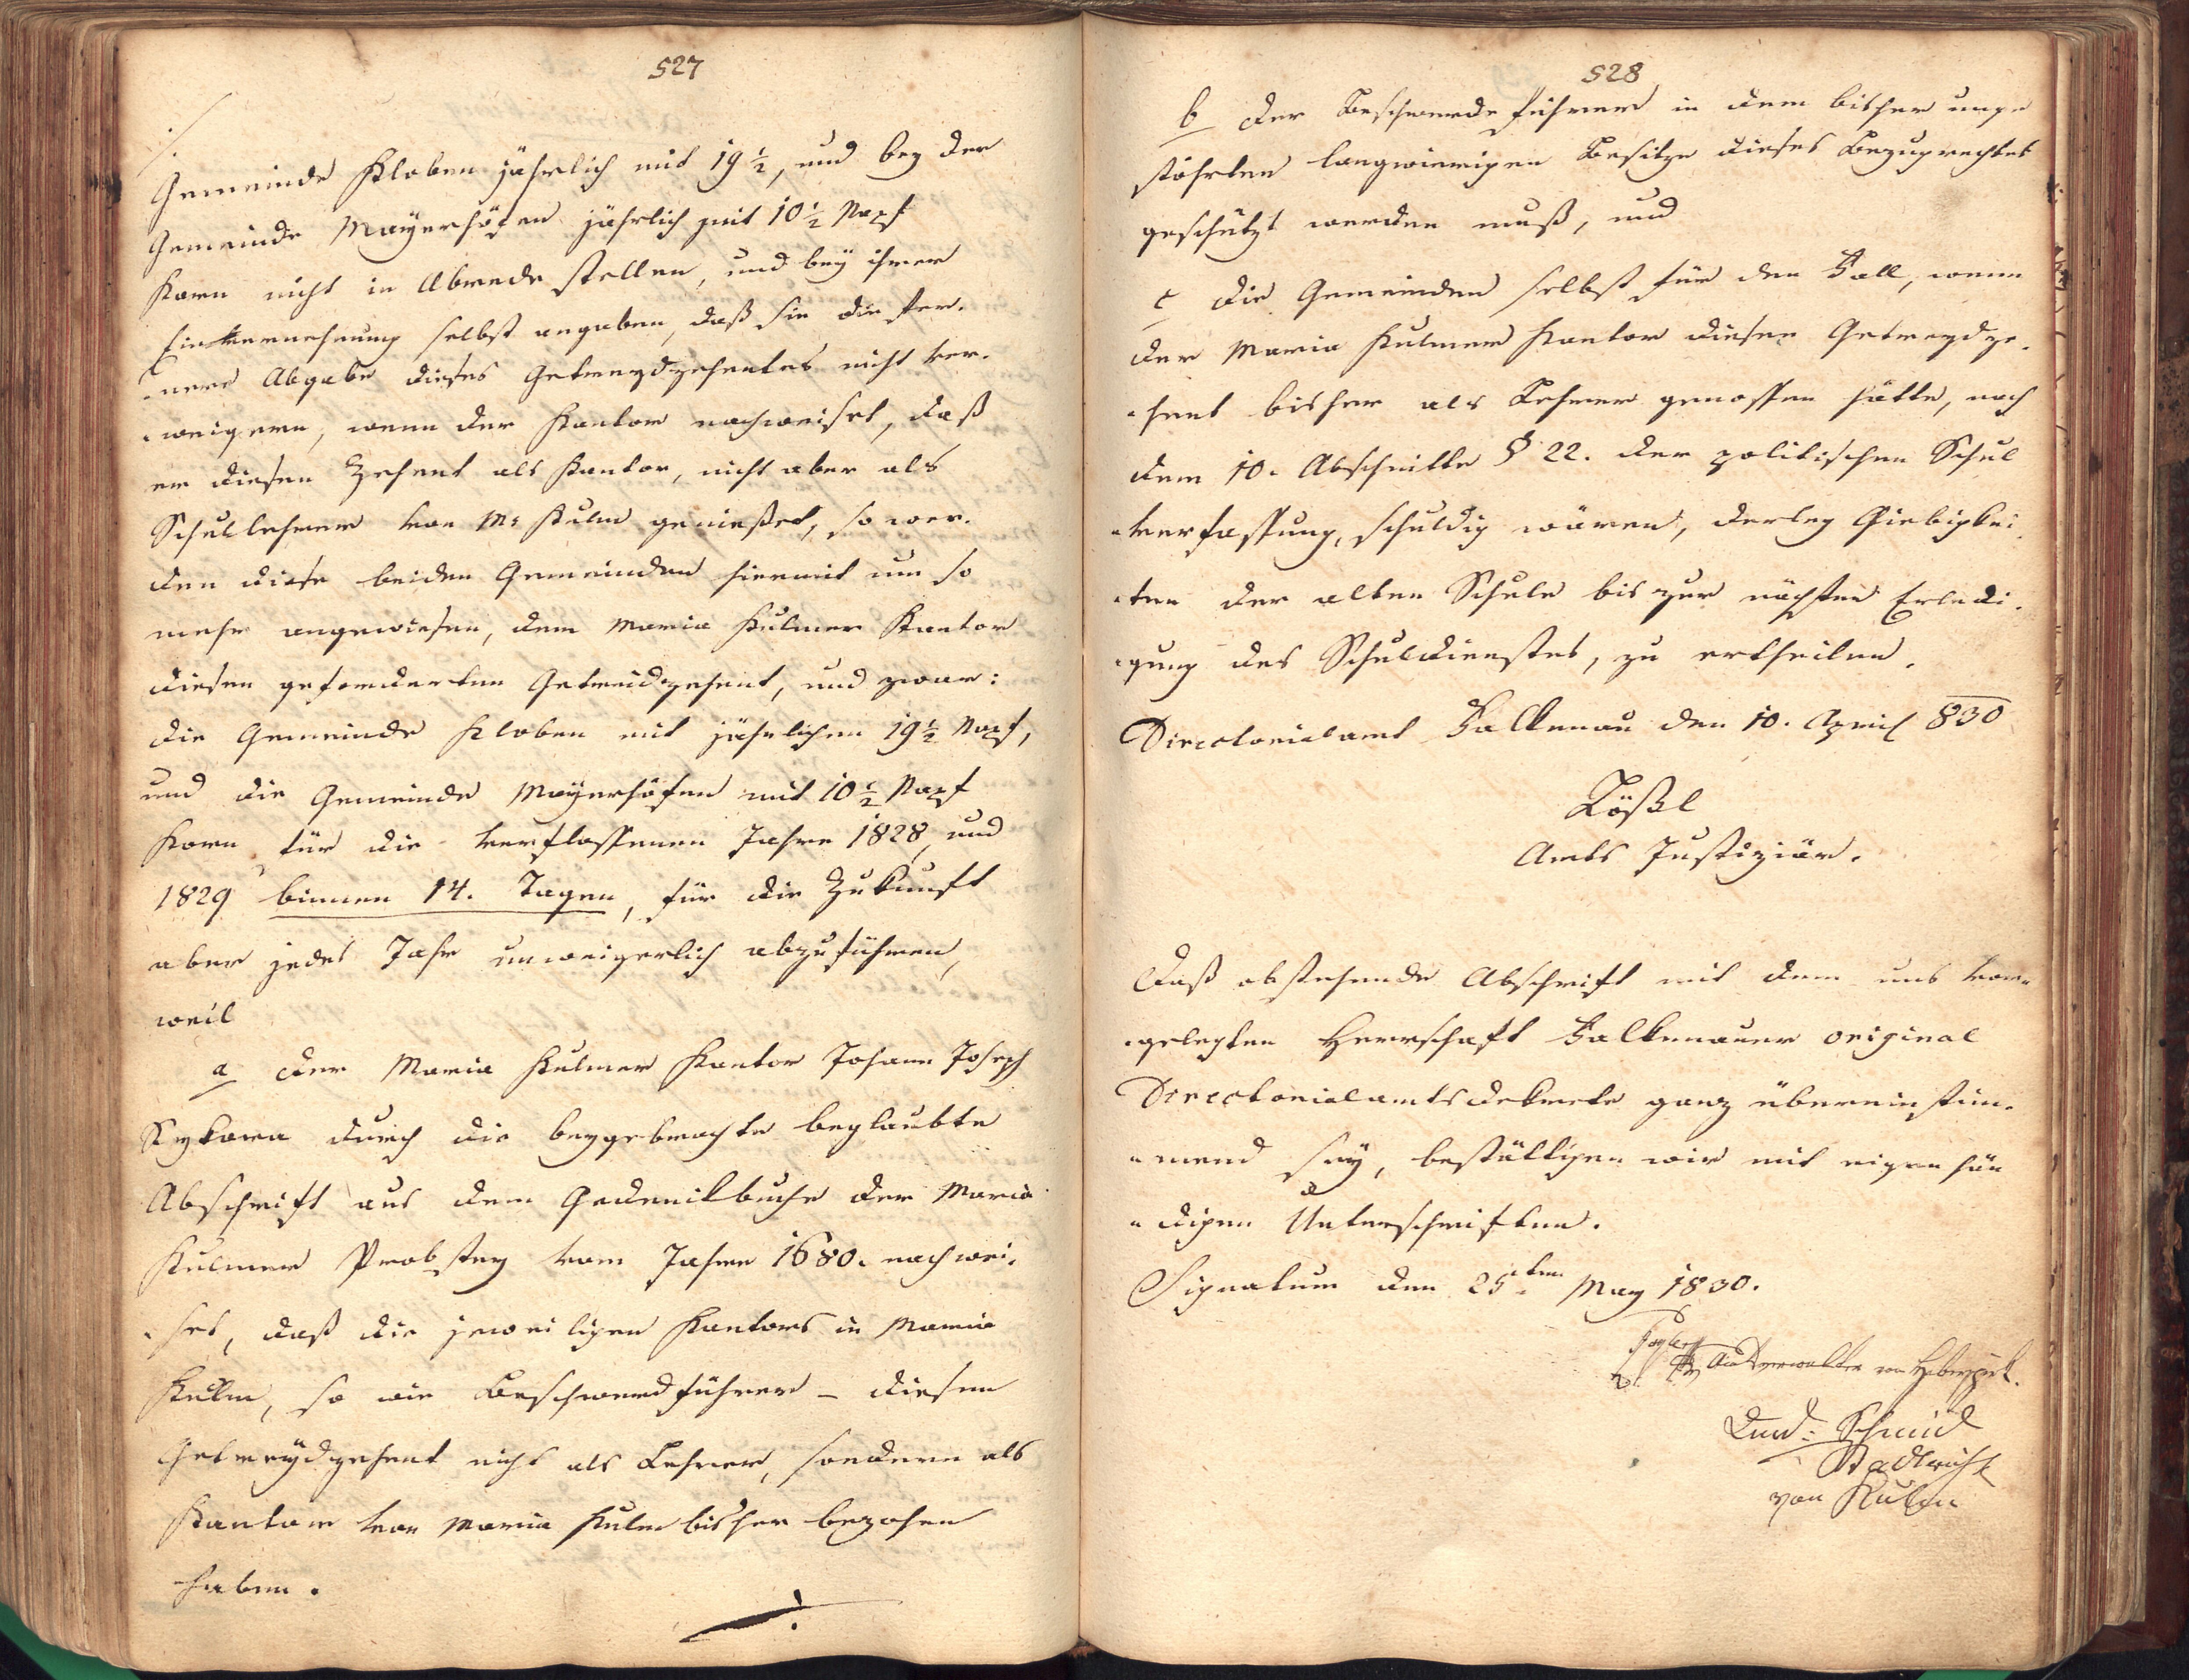 527
./.
Gemeinde Kloben jährlich mit 19 ½, und bey der
Gemeinde Mayerhöfen jährlich mit 10 ½ Napf
Korn nicht in Abrede stellen, und bey ihrer
Einvernehmung selbst angaben, daß sie die fer-
nere Abgabe dieses Getreydzehentes nicht ver-
weigern, wenn der Kantor nachweiset, daß
er diesen Zehent als Kantor, nicht aber als
Schullehrer von Ma Kulm genießet, so wer-
den diese beiden Gemeinden hiermit um so
mehr angewiesen, dem Maria Kulmer Kantor
diesen geforderten Getreidzehent, und zwar:
die Gemeinde Kloben mit jährlichen 19 ½ Napf,
und die Gemeinde Mayerhöfen mit 10 ½ Napf
Korn für die verflossenen Jahre 1828, und
1829 binnen 14. Tagen, für die Zukunft
aber jedes Jahr unweigerlich abzuführen,
weil
a der Maria Kulmer Kantor Johann Joseph
Sykora durch die beygebrachte beglaubte
Abschrift aus dem Gedenkbuche der Maria
Kulmer Probstey vom Jahre 1680. nachwei-
set, daß die jeweiligen Kantors in Maria
Kulm, so wie Beschwerdführer – diesen
Getreydzehent nicht als Lehrer, sondern als
Kantor von Maria Kulm bisher bezohen
haben.
./.
528
b der Beschwerdeführer in dem bisher unge
stöhrten langwierigen Besitze dieses Bezugrechtes
geschützt werden muß, und
c die Gemeinden selbst für den Fall, wenn
der Maria Kulmer Kantor diesen Getreydze-
hent bisher als Lehrer genossen hätte, nach
dem 10. Abschnitte § 22. der politischen Schul
verfassung, schuldig wären, derley Giebigkei-
ten der alten Schule bis zur nächsten Erledi-
gung des Schuldienstes, zu ertheilen.
Directorialamt Falkenau den 10. April 830
Lößl
Amts Justiziär.
Daß obstehende Abschrift mit dem uns vor-
gelegten Herrschaft Falkenauer original
Directorialamtsdekrete ganz übereinstim-
mend sey, bestättigen wir mit eigenhän
digen Unterschriften.
Signatum den 25ten May 1830.
Amtsverwalter von
Schmid
Stadtricht
von Kulm